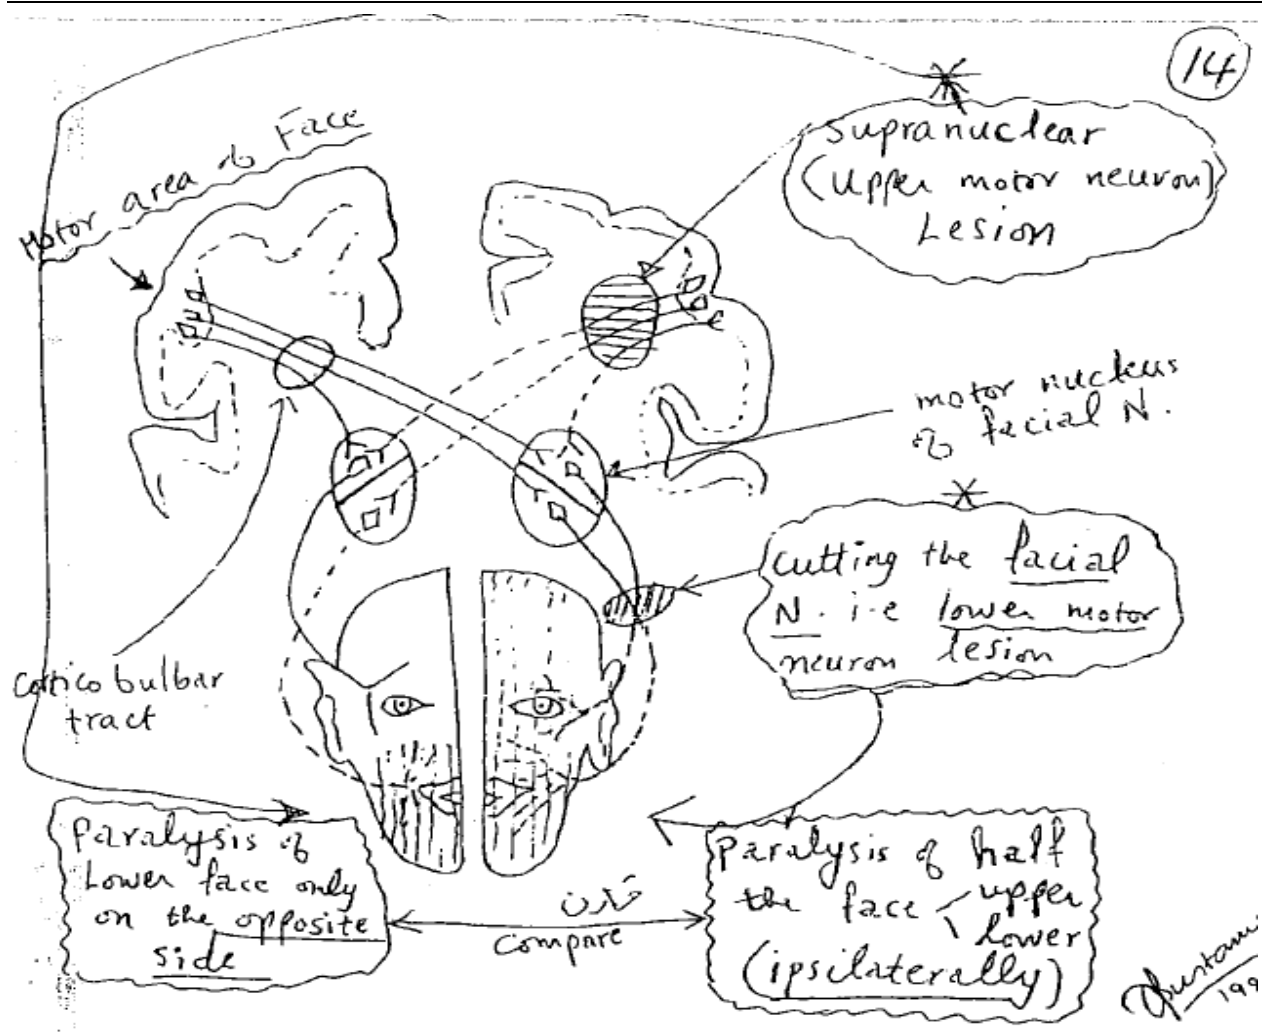 14
Supranuclear
(Upper motor neuron)
Lesion
Motor area of Face
motor nucleus
of facial N.
Cutting the facial
N. i.e lower motor
neuron lesion
Corticobulbar
tract
Paralysis of
Lower face only
on the opposite
side
قارن
Compare
Paralysis of half
the face upper
lower
(ipsilaterally)
199